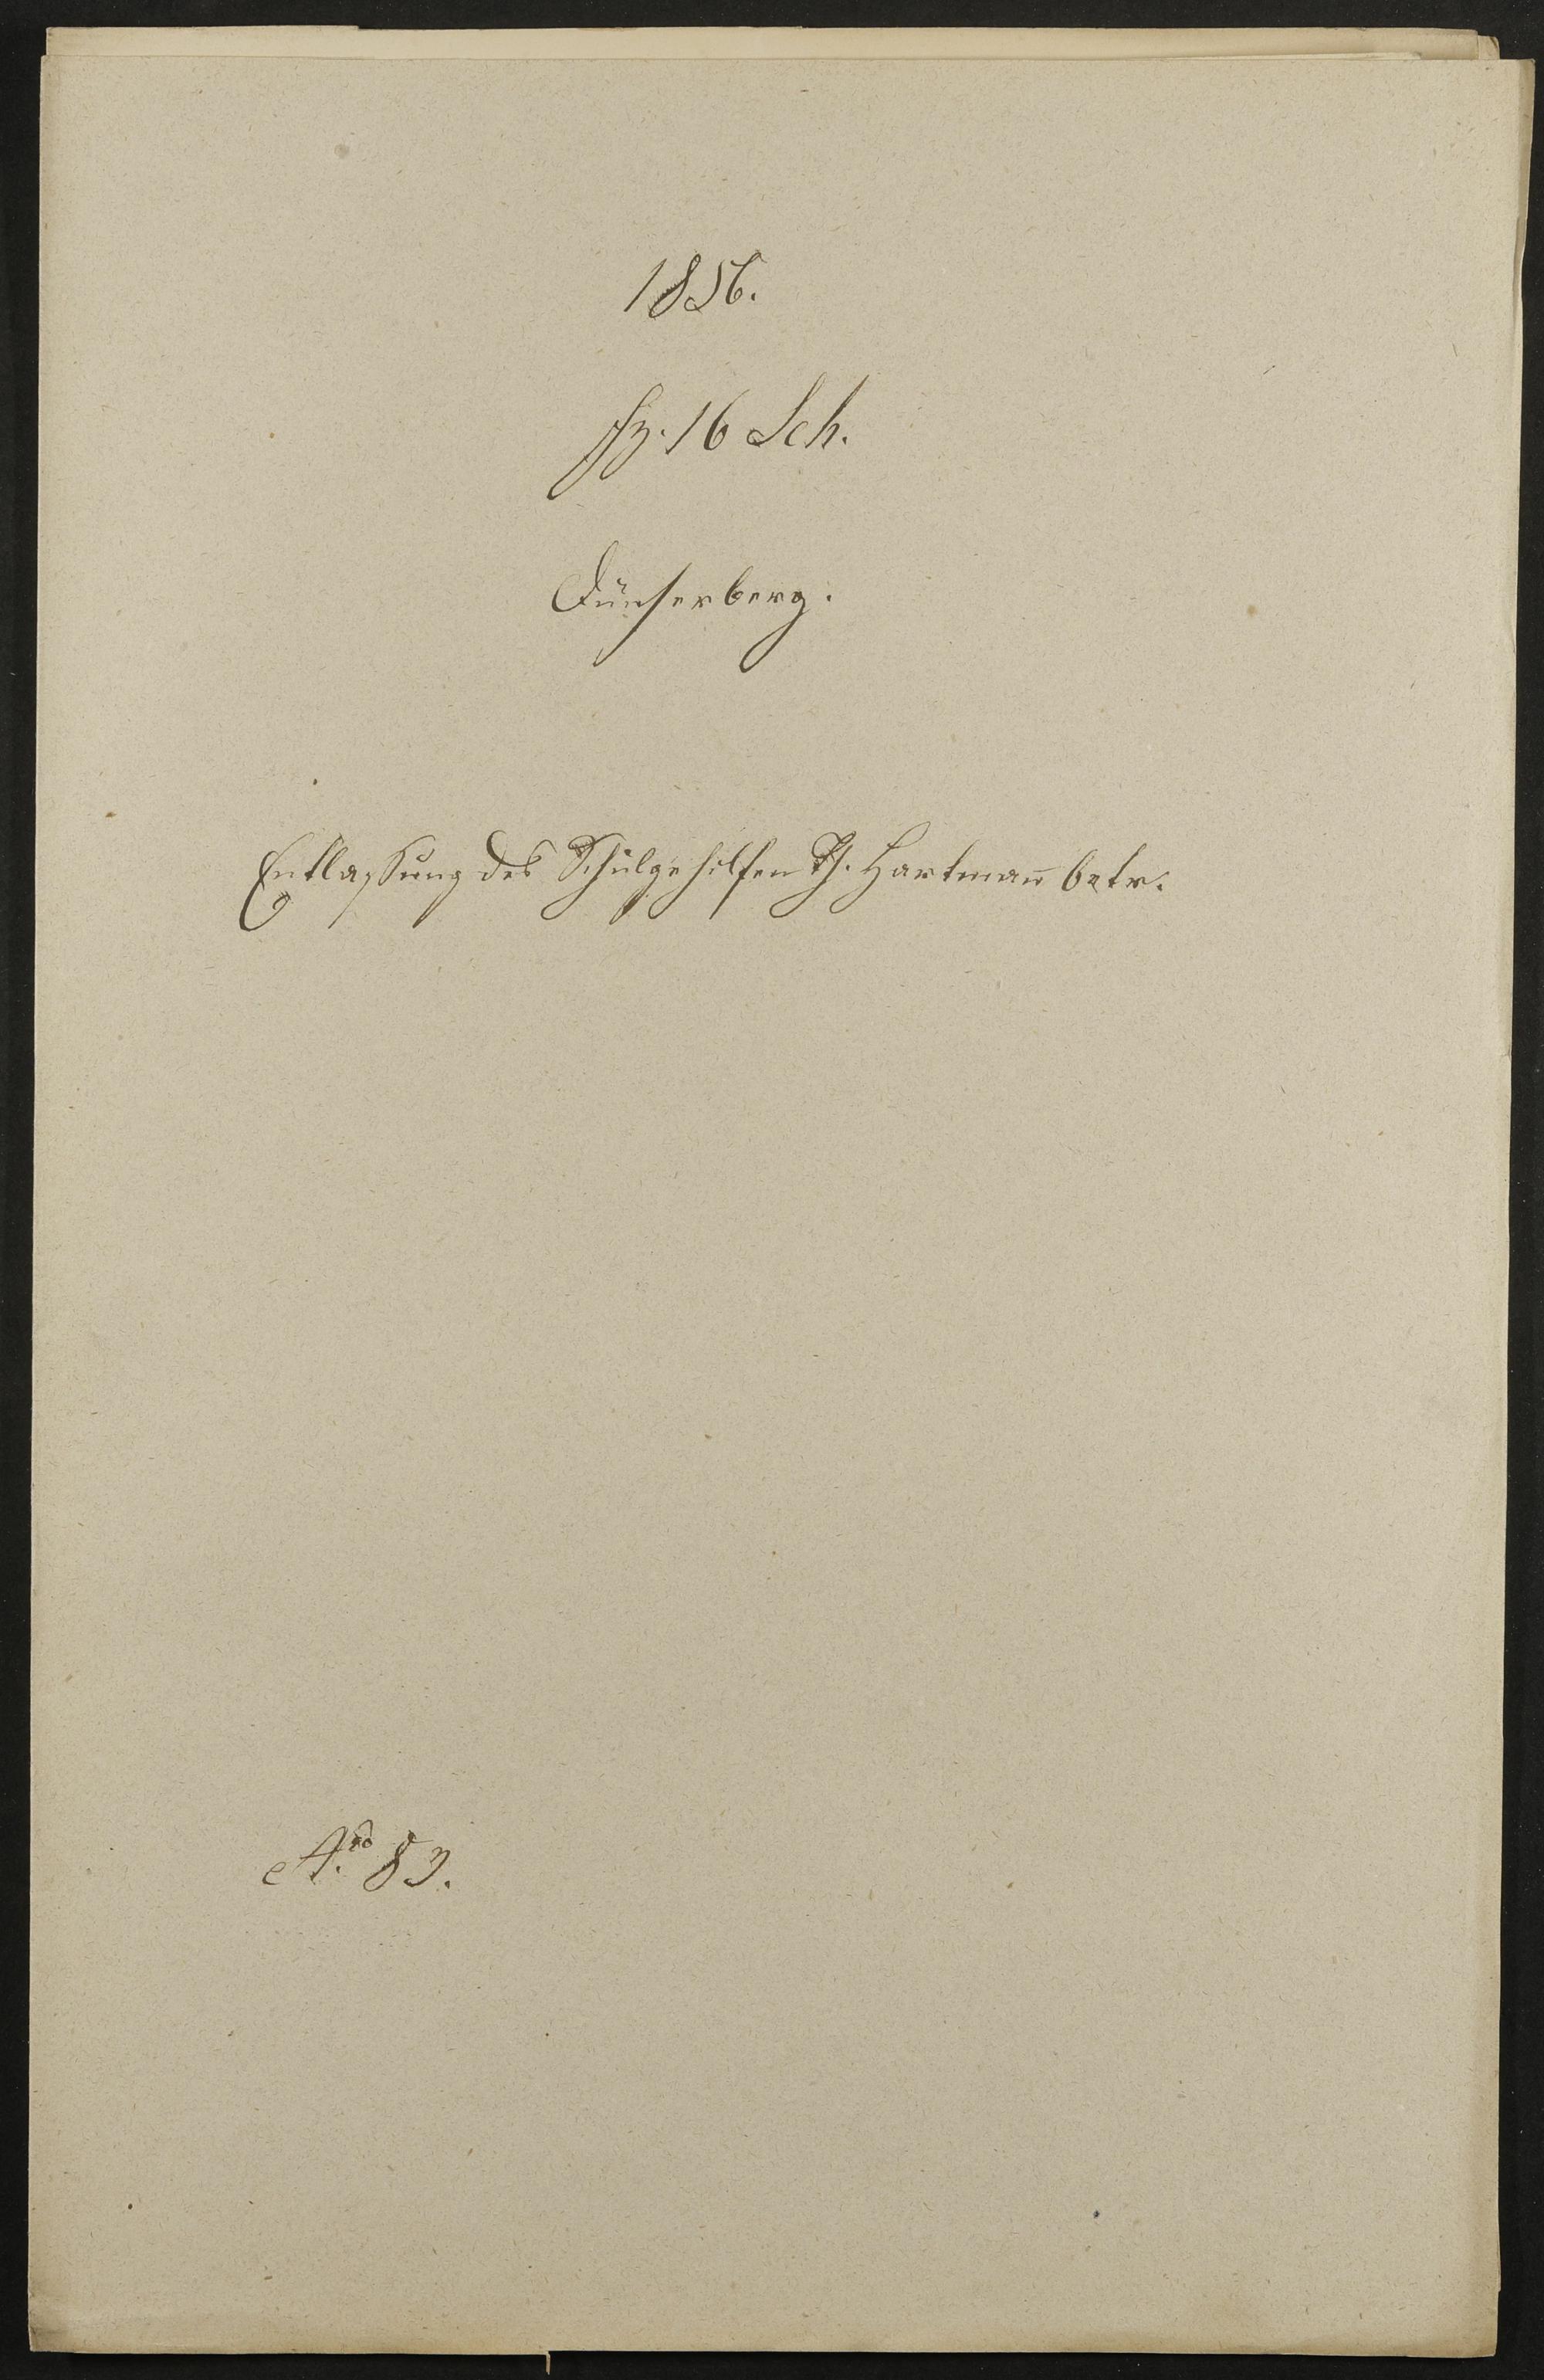 1856.
Fz. 16 Sch.
Dünserberg.
Entlassung des Schulgehilfen Th. Hartman̄ betr.
83.